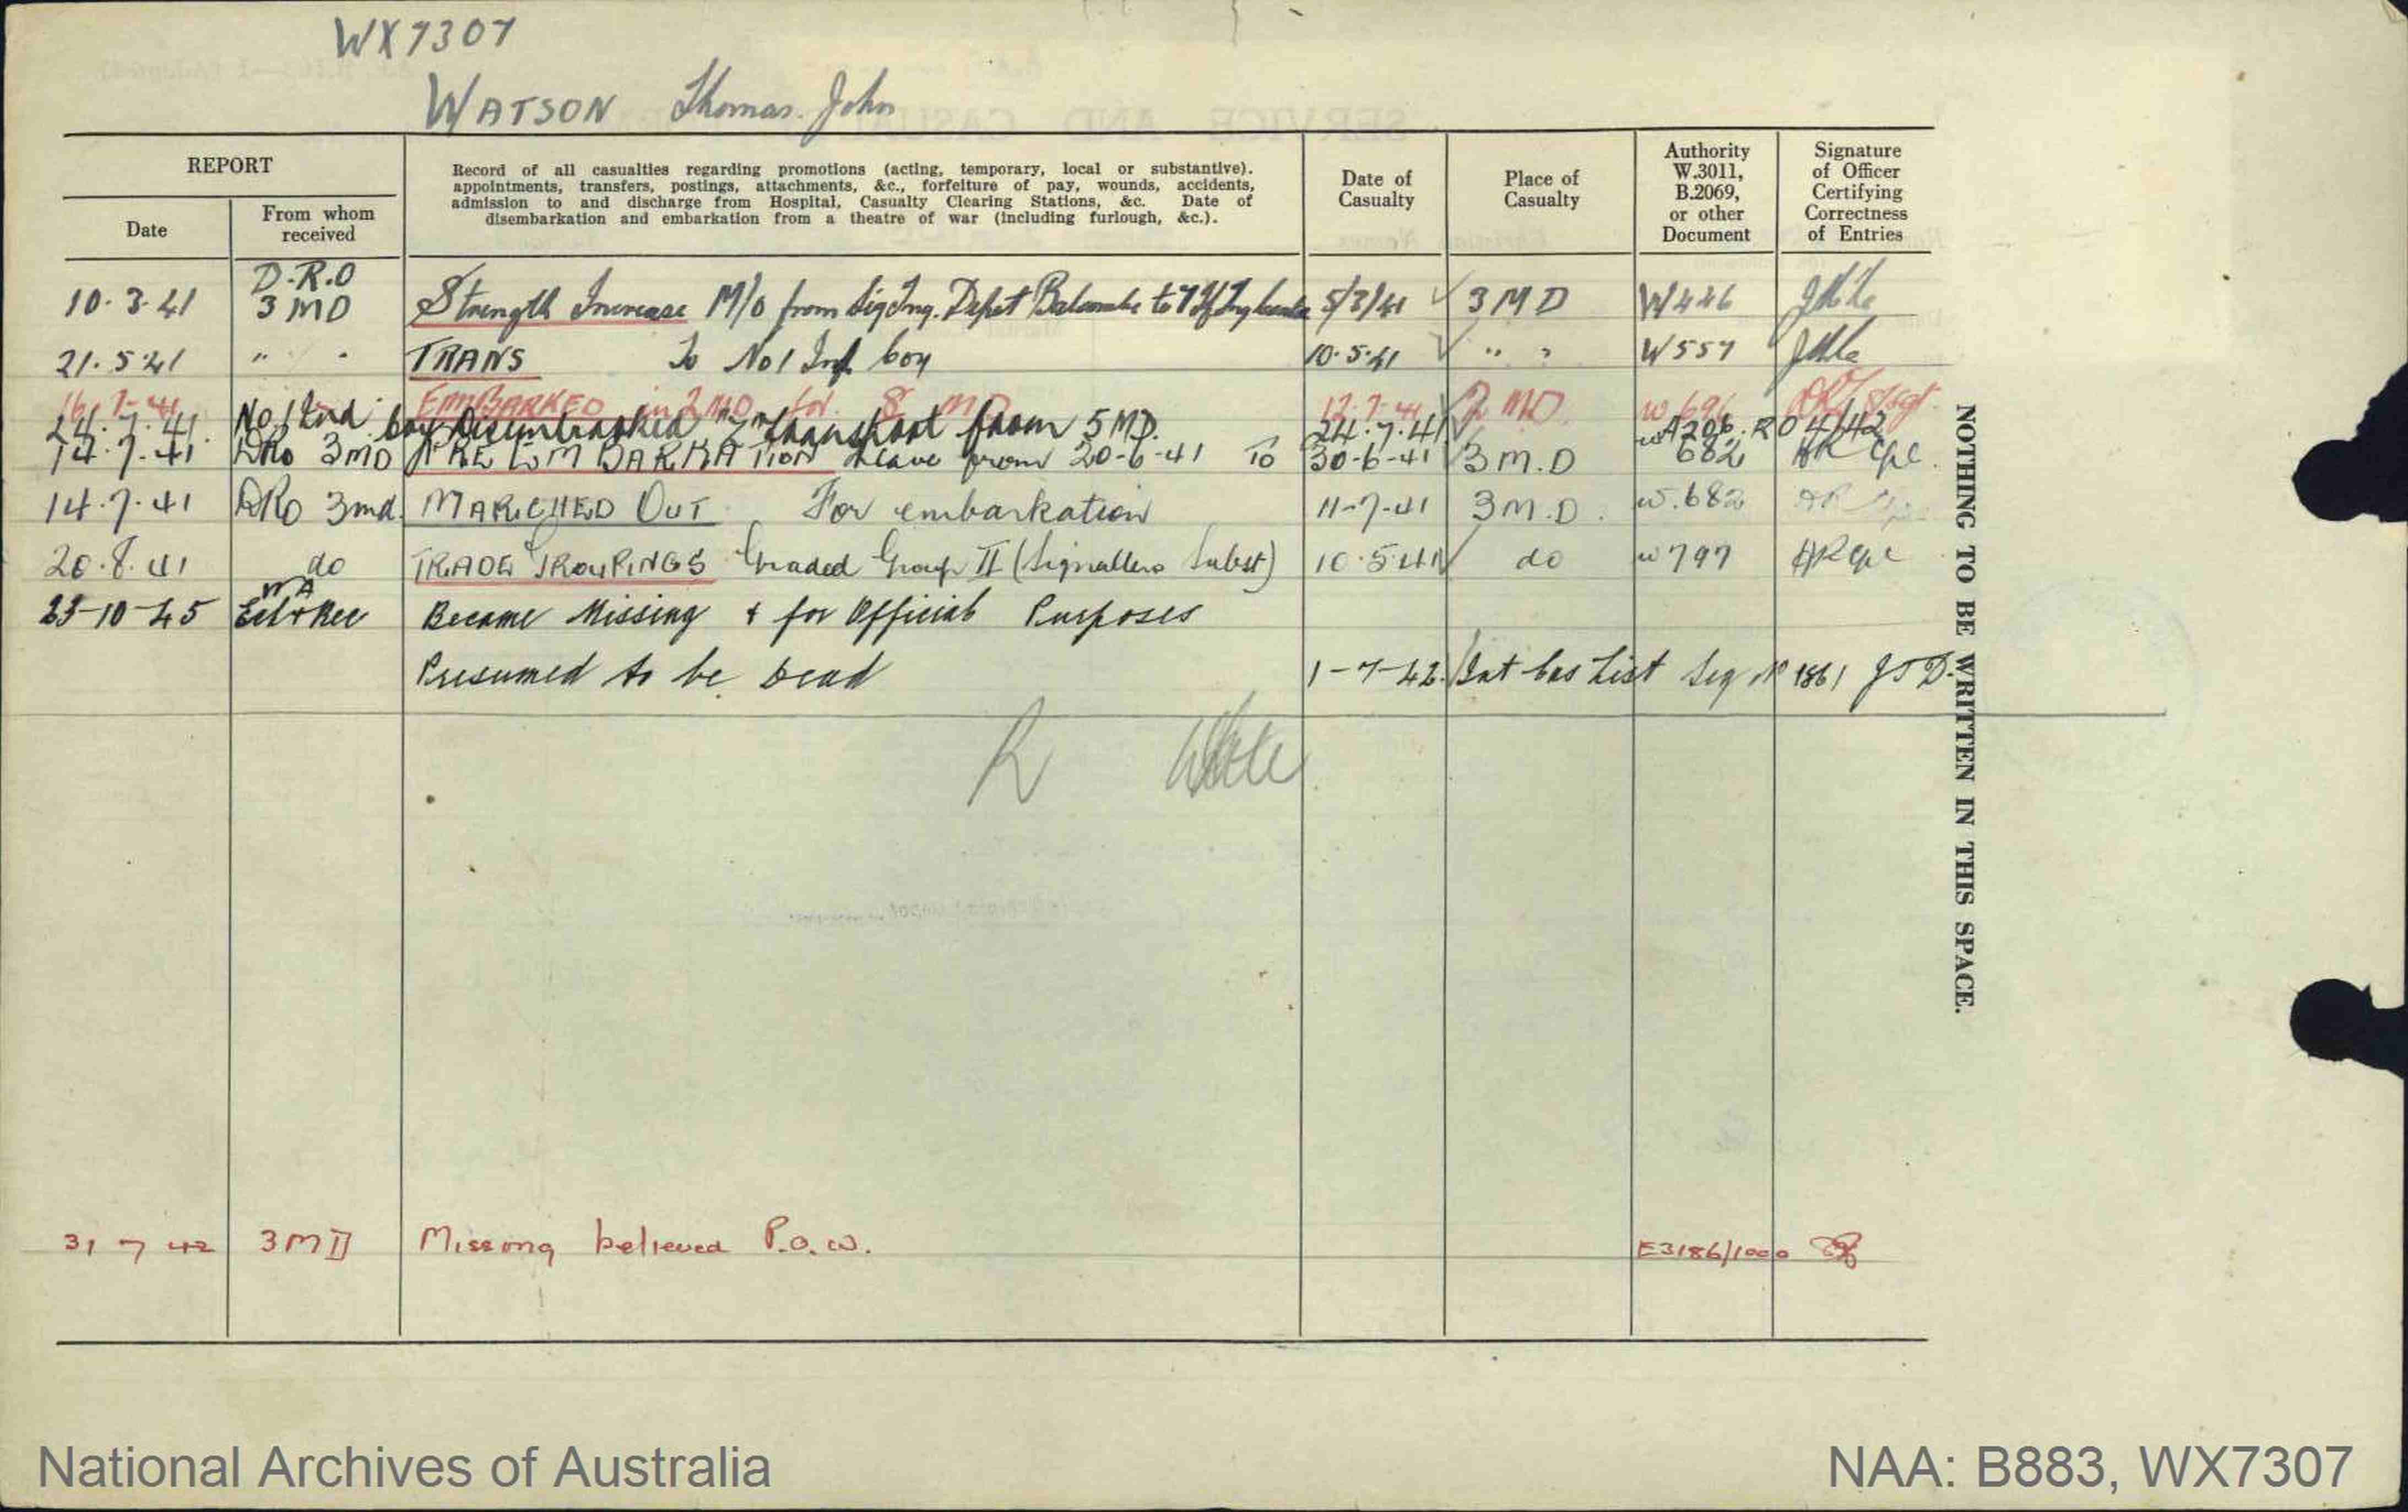 WX7307
WATSON Thomas. John
REPORT
Date
From whom received
Record of all casualties regarding promotions (acting, temporary, local or substantive).
appointments, transfers, postings, attachments, &c., forfeiture of pay, wounds, accidents,
admission to and discharge from Hospital, Casualty Clearing Stations, &c. Date of
disembarkation and embarkation from a theatre of war (including furlough, &c.).
Date of Casualty
Place of Casualty
Authority W.3011, B.2069, or other Document
Signature of Officer Certifying Correctness of Entries
10.3.41 D.R.O 3 MD Strength Increase M/O from Sig Tng. Depot Balcombe to 7 5/3/41 3 MD W446
21.5.41 " " TRANS To No 1 Ind Coy 10.5.41 " " W557
16.7.41 EMBARKED in 2 MD for 8 MD 12.7.41 2 MD W 696
24.7.41 No 1 Ind Coy Disembarked transport from 5 MD. 24.7.41 A206. RO 4/42
14.7.41 DRO 3 MD PRE EMBARKATION Leave from 20-6-41 To 30-6-41 3 M.D w 682 Cpl.
14.7.41 DRO 3md. MARCHED OUT For embarkation 11-7-41 3 M.D. w.682
20.8.41 do TRADE GROUPINGS Graded Group II (Signallers Subst) 10.5.41 do w 797 Cpl
23-10-45 WA Ech & Rec Became Missing & for Official Purposes
Presumed to be Dead 1-7-42 Int Cas List Seq No 1861 JSD.
R
31 7 42 3 MD Missing believed P.O.W. E3186/1000
NOTHING TO BE WRITTEN IN THIS SPACE.
National Archives of Australia
NAA: B883, WX7307